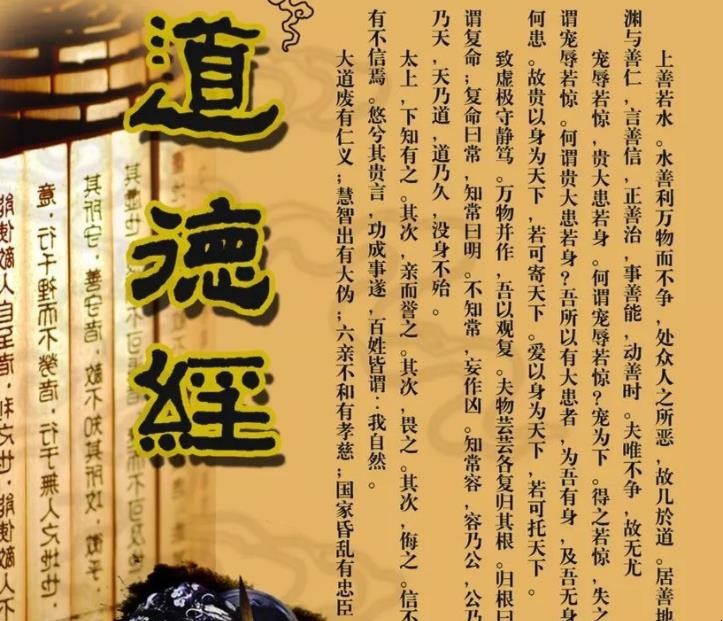 道德經
上善若水。水善利万物而不争,处众人之所恶,故几於道。居善地
渊与善仁,言善信,正善治,事善能,动善时。夫唯不争,故无尤
宠辱若惊,贵大患若身。何谓宠辱若惊?宠为下。得之若惊,失之
谓宠辱若惊。何谓贵大患若身?吾所以有大患者,为吾有身,及吾无身
何患。故贵以身为天下,若可寄天下。爱以身为天下,若可托天下。
致虚极守静笃。万物并作,吾以观复。夫物芸芸各复归其根。归根曰
谓复命;复命曰常,知常曰明。不知常,妄作凶。知常容,容乃公,公乃
乃天,天乃道,道乃久,没身不殆。
太上,下知有之。其次,亲而誉之。其次,畏之。其次,侮之。信不
有不信焉。悠兮其贵言,功成事遂,百姓皆谓:我自然。
大道废有仁义;慧智出有大伪;六亲不和有孝慈;国家昏乱有忠臣
其所守。善守者,敵不知其所攻。微乎
意。行千裡而不勞者,行于無人之地也。
能使敵人自至者,利之也。能使敵人不